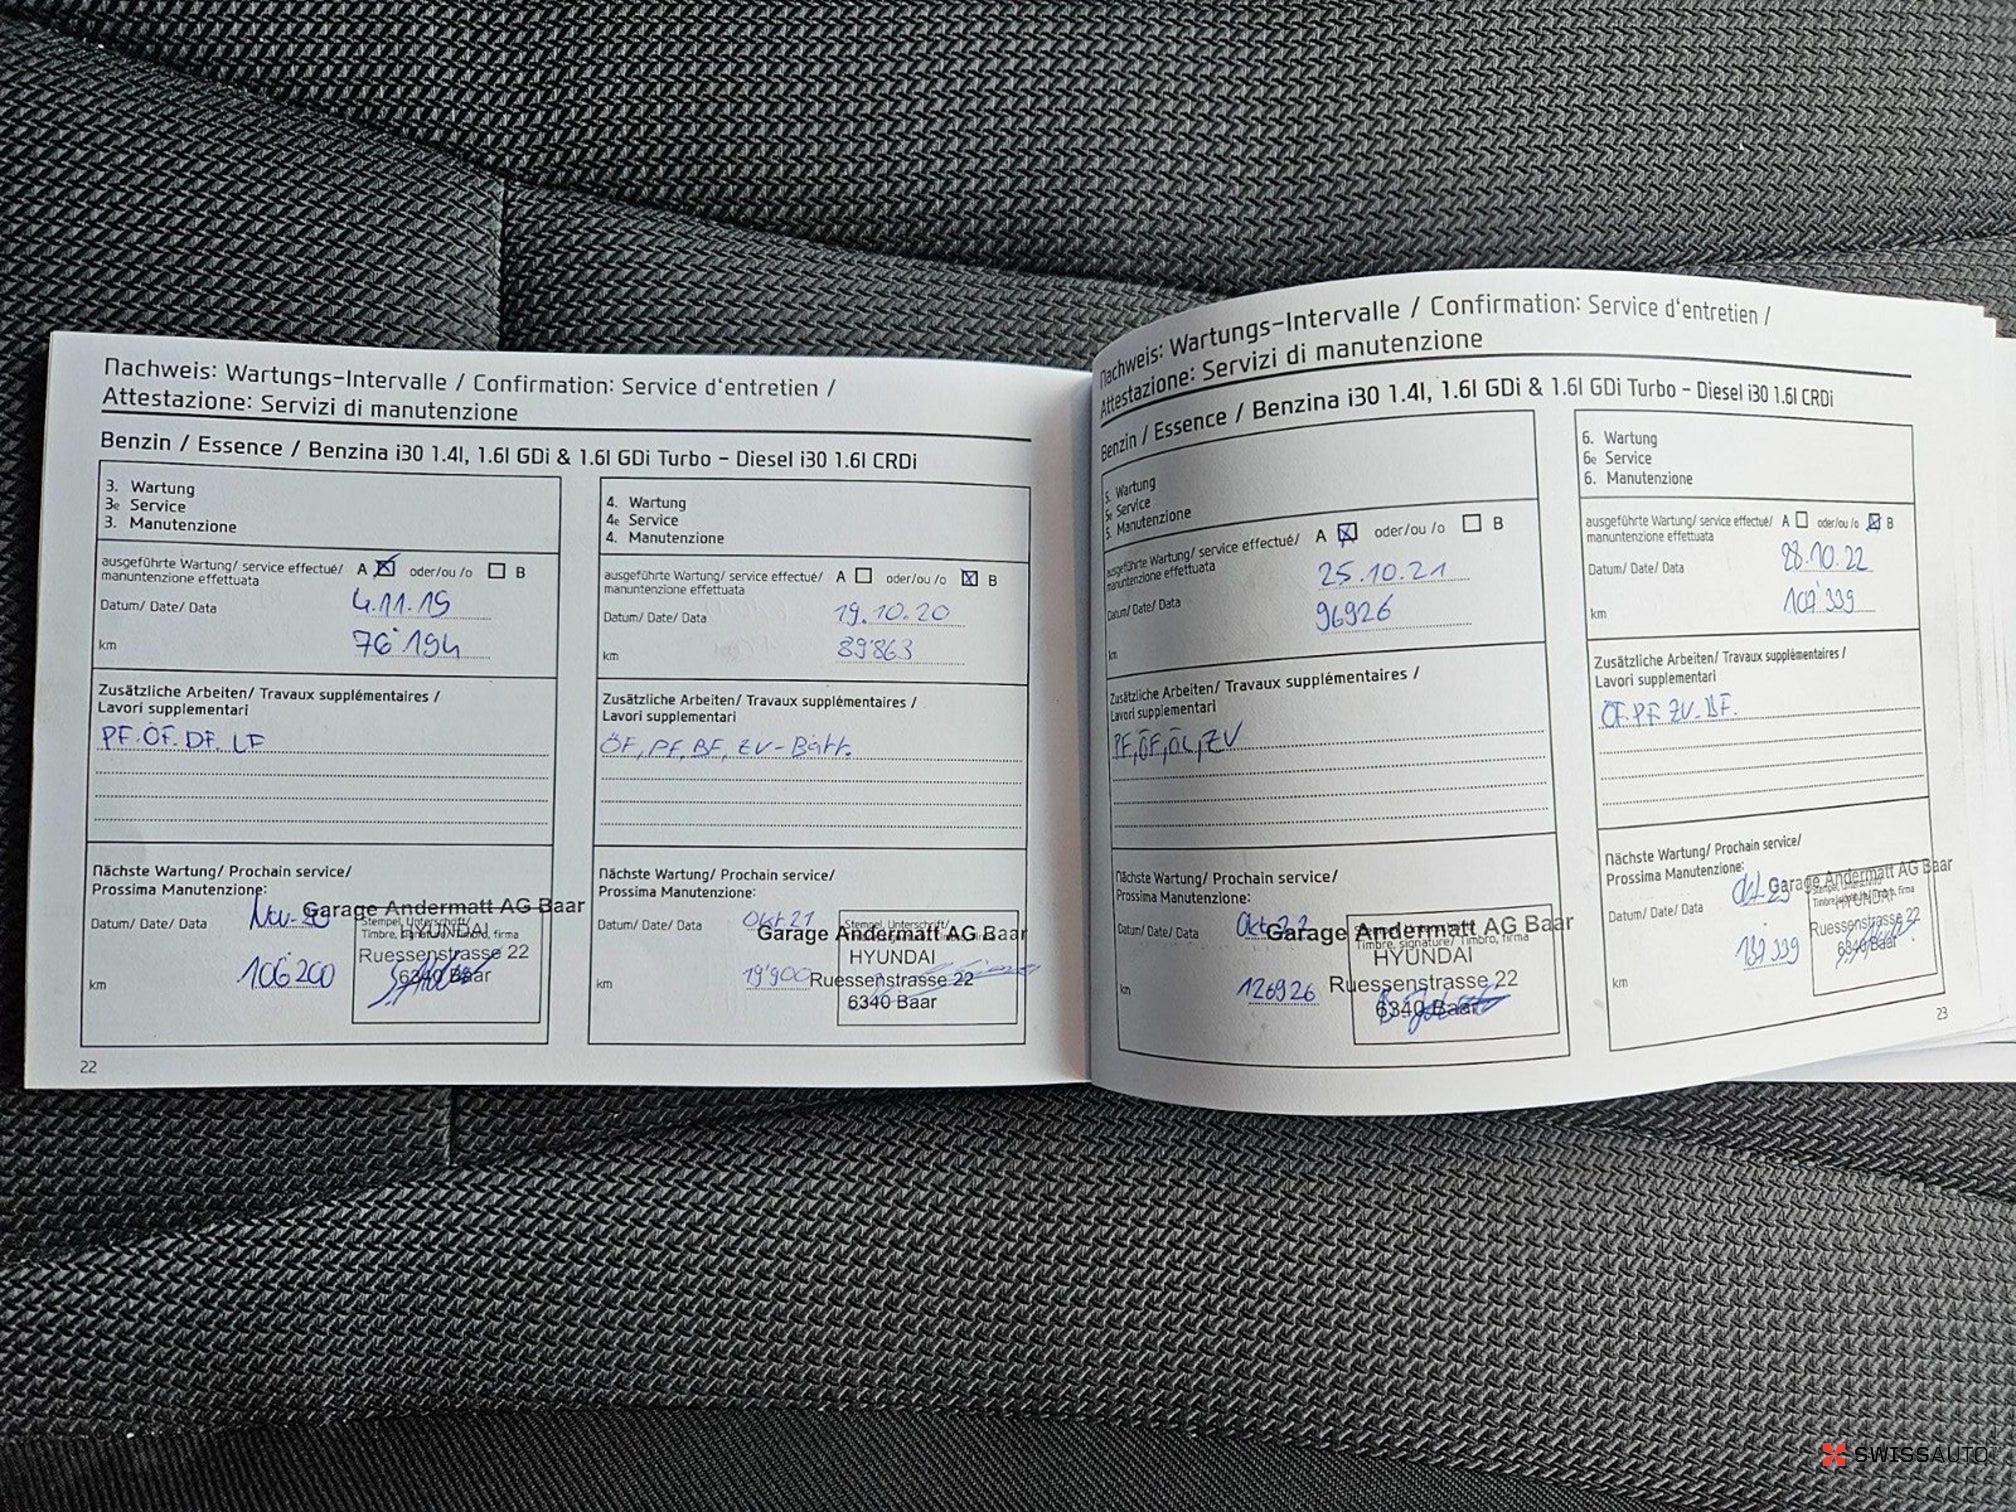 Nachweis: Wartungs-Intervalle / Confirmation: Service d'entretien /
Attestazione: Servizi di manutenzione
Benzin / Essence / Benzina i30 1.4l, 1.6l GDi & 1.6l GDi Turbo – Diesel i30 1.6l CRDi
3. Wartung
3e Service
3. Manutenzione
ausgeführte Wartung/ service effectué/ A oder/ou /o B
manuntenzione effettuata
Datum/ Date/ Data 4.11.19
km 76'194
Zusätzliche Arbeiten/ Travaux supplémentaires /
Lavori supplementari
PF. ÖF. DF. LF
Nächste Wartung/ Prochain service/
Prossima Manutenzione:
Datum/ Date/ Data
Garage Andermatt AG Baar
Stempel, Unterschrift/
Timbre, signature/ Timbro, firma
HYUNDAI
Ruessenstrasse 22
6340 Baar
km 106'200
22
4. Wartung
4e Service
4. Manutenzione
ausgeführte Wartung/ service effectué/ A oder/ou /o B
manuntenzione effettuata
Datum/ Date/ Data 19.10.20
km 89'863
Zusätzliche Arbeiten/ Travaux supplémentaires /
Lavori supplementari
ÖF, PF, BF, ZV-Batt.
Nächste Wartung/ Prochain service/
Prossima Manutenzione:
Datum/ Date/ Data Okt 21
Stempel, Unterschrift/
Garage Andermatt AG Baar
HYUNDAI
Ruessenstrasse 22
6340 Baar
km 19'900
Nachweis: Wartungs-Intervalle / Confirmation: Service d'entretien /
Attestazione: Servizi di manutenzione
Benzin / Essence / Benzina i30 1.4l, 1.6l GDi & 1.6l GDi Turbo – Diesel i30 1.6l CRDi
5. Wartung
5e Service
5. Manutenzione
ausgeführte Wartung/ service effectué/ A oder/ou /o B
manuntenzione effettuata
Datum/ Date/ Data 25.10.21
km 96926
Zusätzliche Arbeiten/ Travaux supplémentaires /
Lavori supplementari
PF, ÖF, ÖL, ZV
Nächste Wartung/ Prochain service/
Prossima Manutenzione:
Datum/ Date/ Data Okt 22
Garage Andermatt AG Baar
Timbre, signature/ Timbro, firma
HYUNDAI
Ruessenstrasse 22
6340 Baar
km 126926
6. Wartung
6e Service
6. Manutenzione
ausgeführte Wartung/ service effectué/ A oder/ou /o B
manuntenzione effettuata
Datum/ Date/ Data 28.10.22
km 107'339
Zusätzliche Arbeiten/ Travaux supplémentaires /
Lavori supplementari
ÖF. PF. ZV. BF.
Nächste Wartung/ Prochain service/
Prossima Manutenzione:
Datum/ Date/ Data Okt 23
Garage Andermatt AG Baar
HYUNDAI
Ruessenstrasse 22
6340 Baar
km 137'339
23
SWISSAUTO